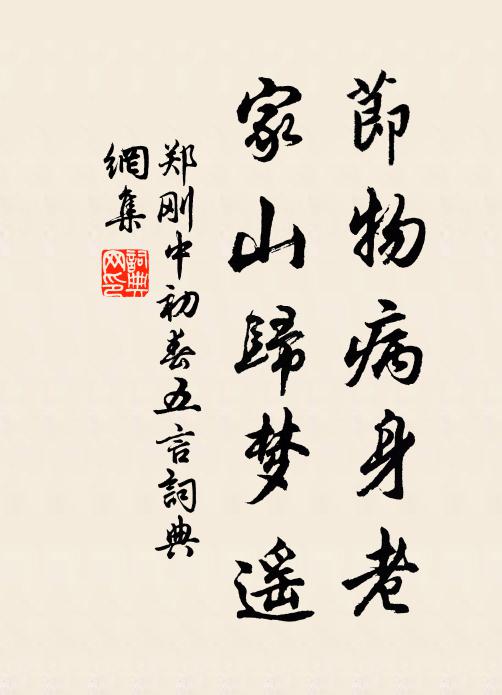 莭物病身老
家山歸梦遥
郑刚中初春五言詞典
網集
詞典网印